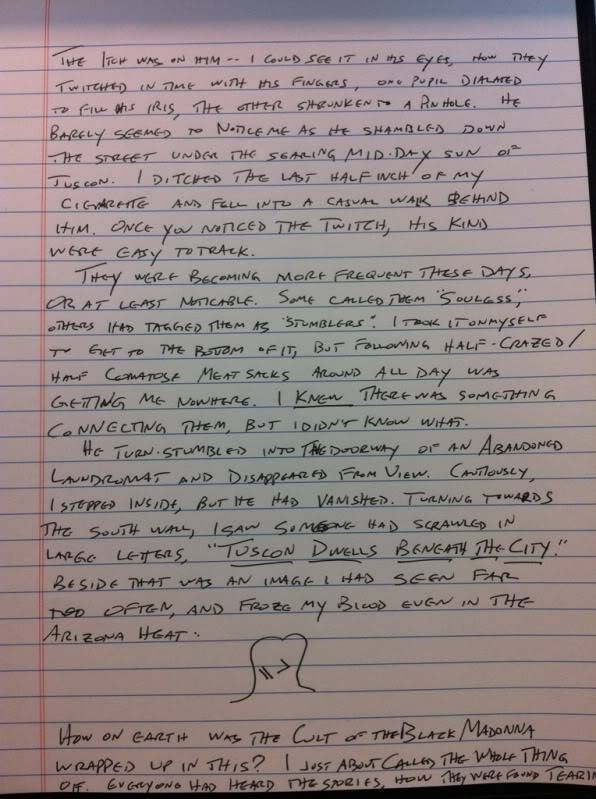 THE ITCH WAS ON HIM -- I COULD SEE IT IN HIS EYES, HOW THEY
TWITCHED IN TIME WITH HIS FINGERS, ONE PUPIL DIALATED
TO FILL HIS IRIS, THE OTHER SHRUNKEN TO A PINHOLE. HE
BARELY SEEMED TO NOTICE ME AS HE SHAMBLED DOWN
THE STREET UNDER THE SEARING MID-DAY SUN OF
TUSCON. I DITCHED THE LAST HALF INCH OF MY
CIGARETTE AND FELL INTO A CASUAL WALK BEHIND
HIM. ONCE YOU NOTICED THE TWITCH, HIS KIND
WERE EASY TO TRACK.
THEY WERE BECOMING MORE FREQUENT THESE DAYS,
OR AT LEAST NOTICABLE. SOME CALLED THEM "SOULESS",
OTHERS HAD TAGGED THEM AS "STUMBLERS". I TOOK IT ON MYSELF
TO GET TO THE BOTTOM OF IT, BUT FOLLOWING HALF-CRAZED/
HALF COMATOSE MEAT SACKS AROUND ALL DAY WAS
GETTING ME NOWHERE. I KNEW THERE WAS SOMETHING
CONNECTING THEM, BUT I DIDN'T KNOW WHAT.
HE TURN-STUMBLED INTO THE DOORWAY OF AN ABANDONED
LAUNDROMAT AND DISAPPEARED FROM VIEW. CAUTIOUSLY,
I STEPPED INSIDE, BUT HE HAD VANISHED. TURNING TOWARDS
THE SOUTH WALL, I SAW SOMEONE HAD SCRAWLED IN
LARGE LETTERS, "TUSCON DWELLS BENEATH THE CITY."
BESIDE THAT WAS AN IMAGE I HAD SEEN FAR
TOO OFTEN, AND FROZE MY BLOOD EVEN IN THE
ARIZONA HEAT:
HOW ON EARTH WAS THE CULT OF THE BLACK MADONNA
WRAPPED UP IN THIS? I JUST ABOUT CALLED THE WHOLE THING
OFF. EVERYONE HAD HEARD THE STORIES, HOW THEY WERE FOUND TEARIN